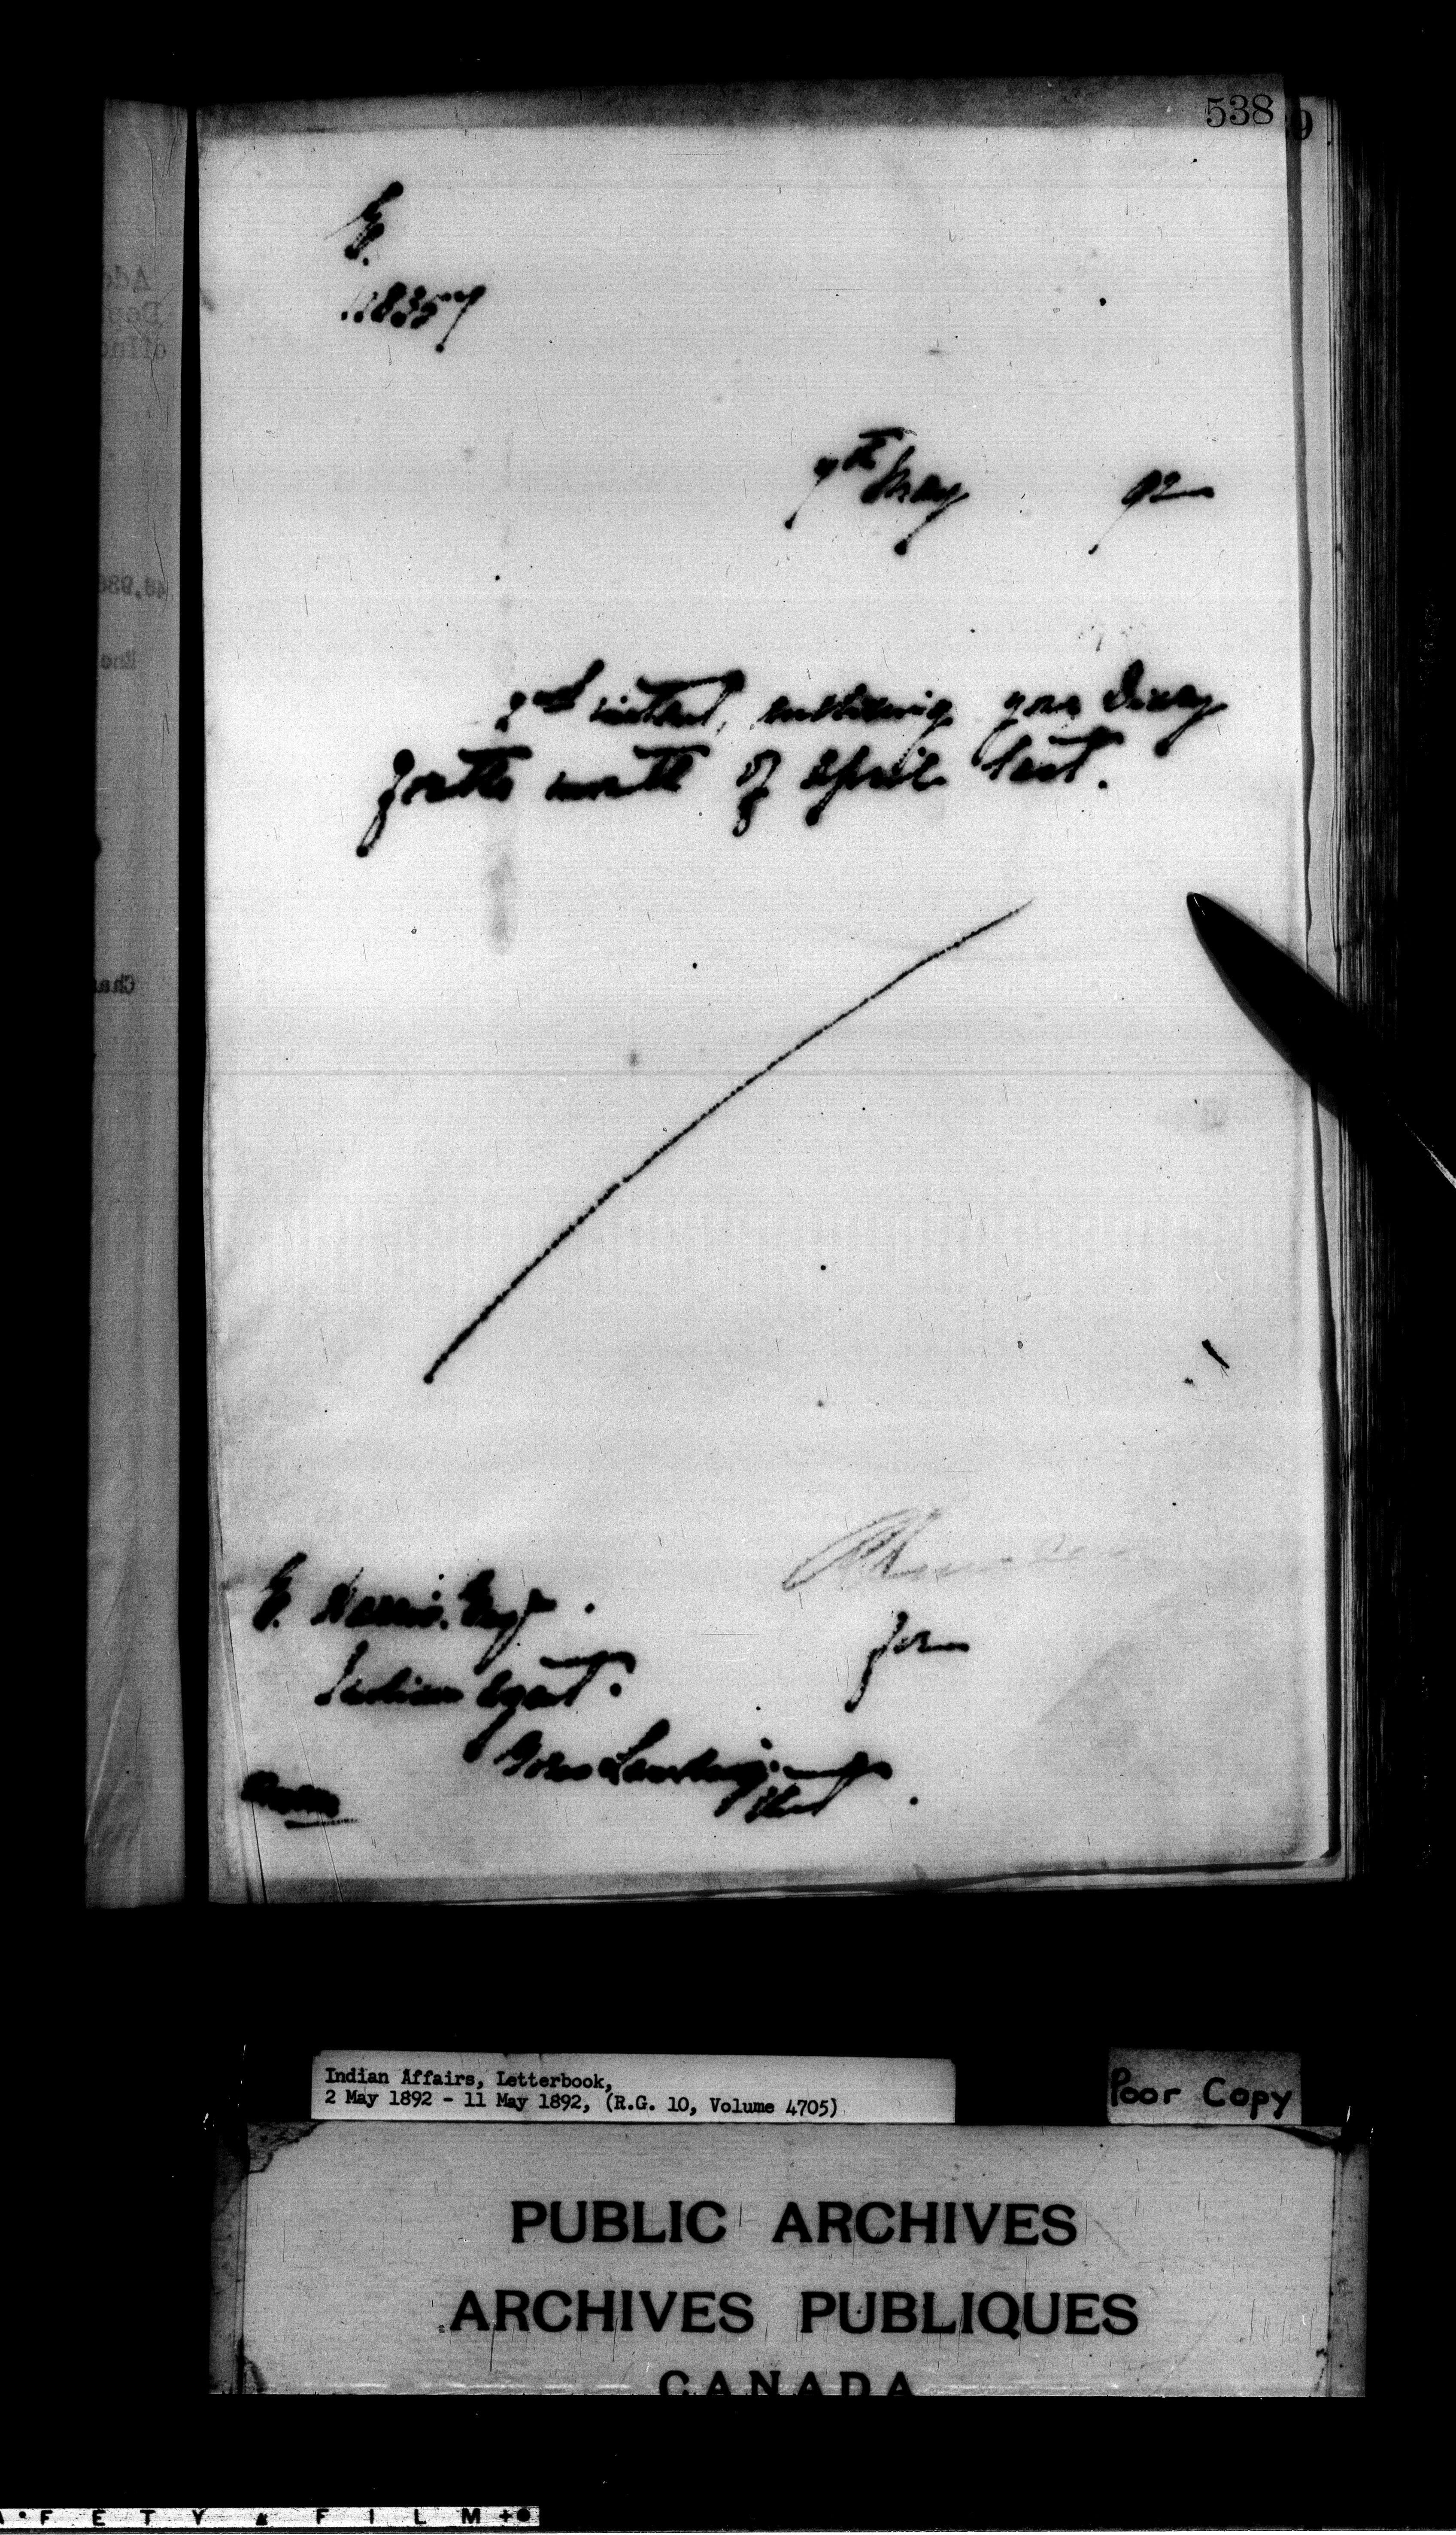 538
E.
11835
7th May 92
2nd instant, enclosing your Diary
for the month of April last.
E. Harris. Esqr.
Indian Agent.
for
Gores Landing.
Ont
Indian Affairs, Letterbook,
2 May 1892 - 11 May 1892, (R.G. 10, Volume 4705)
Poor Copy
PUBLIC ARCHIVES
ARCHIVES PUBLIQUES
CANADA
F E T Y F I L M